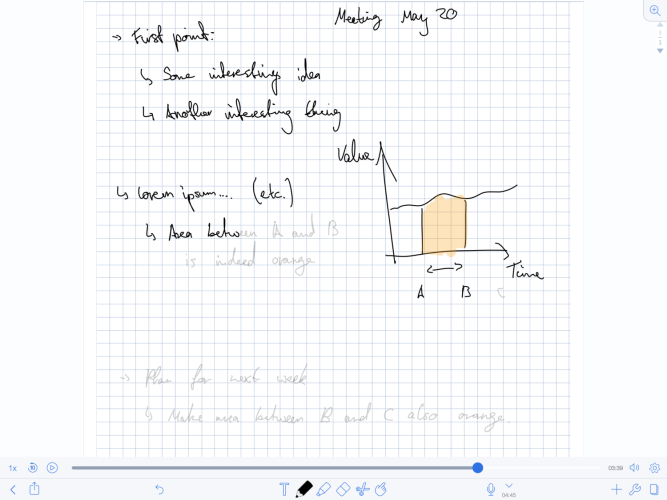 Meeting May 20
→ First point:
↳ Some interesting idea
↳ Another interesting thing
Value
↳ Lorem ipsum.... (etc.)
↳ Area between A and B
is indeed orange
Time
A B C
→ Plan for next week
↳ Make area between B and C also orange.
1x
03:39
04:45